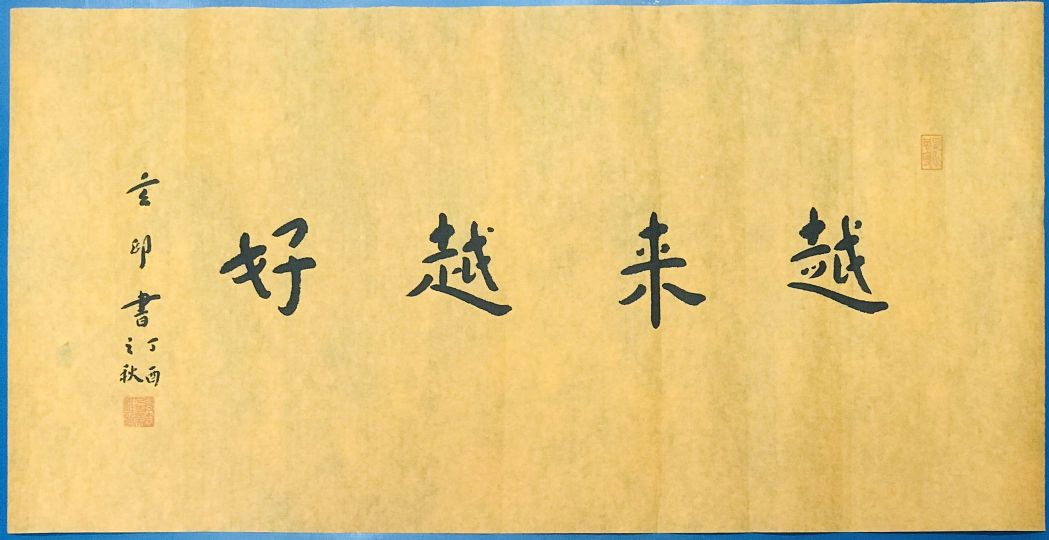 越来越好
玄印書
丁酉
之秋